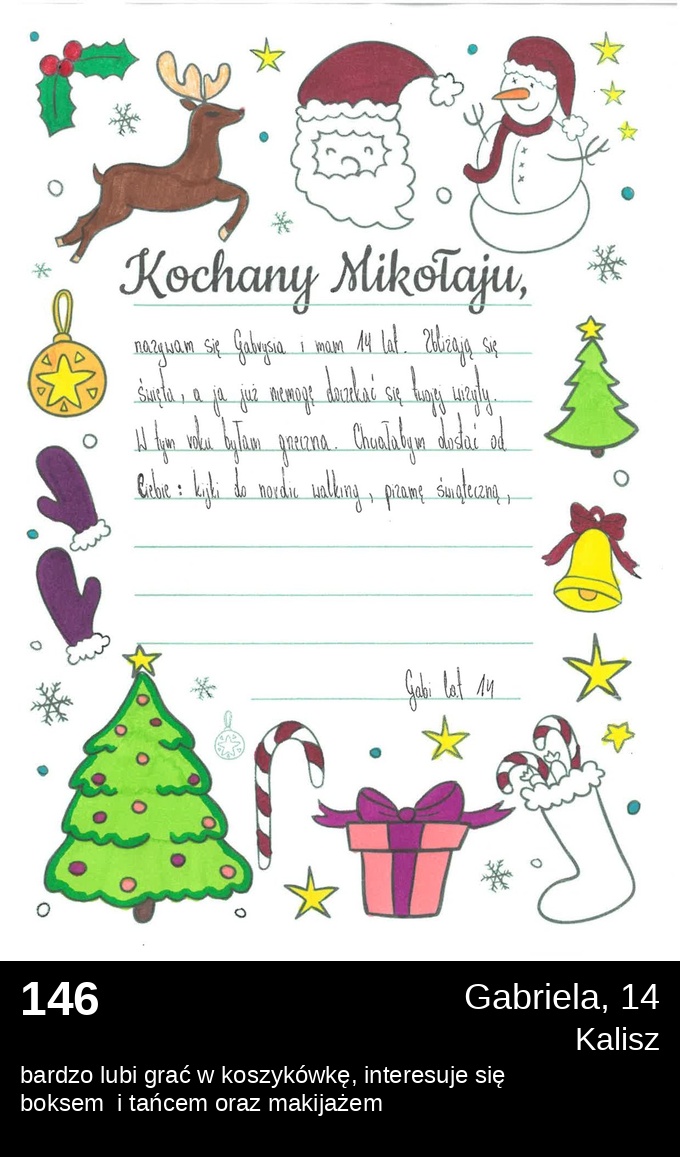 Kochany Mikołaju,
nazywam się Gabrysia i mam 14 lat. Zbliżają się
święta, a ja już niemogę doczekać się twojej wizyty.
W tym roku byłam grzeczna. Chciałabym dostać od
Ciebie: kijki do nordic walking, piżamę świąteczną,
Gabi lat 14
146
Gabriela, 14
Kalisz
bardzo lubi grać w koszykówkę, interesuje się
boksem i tańcem oraz makijażem